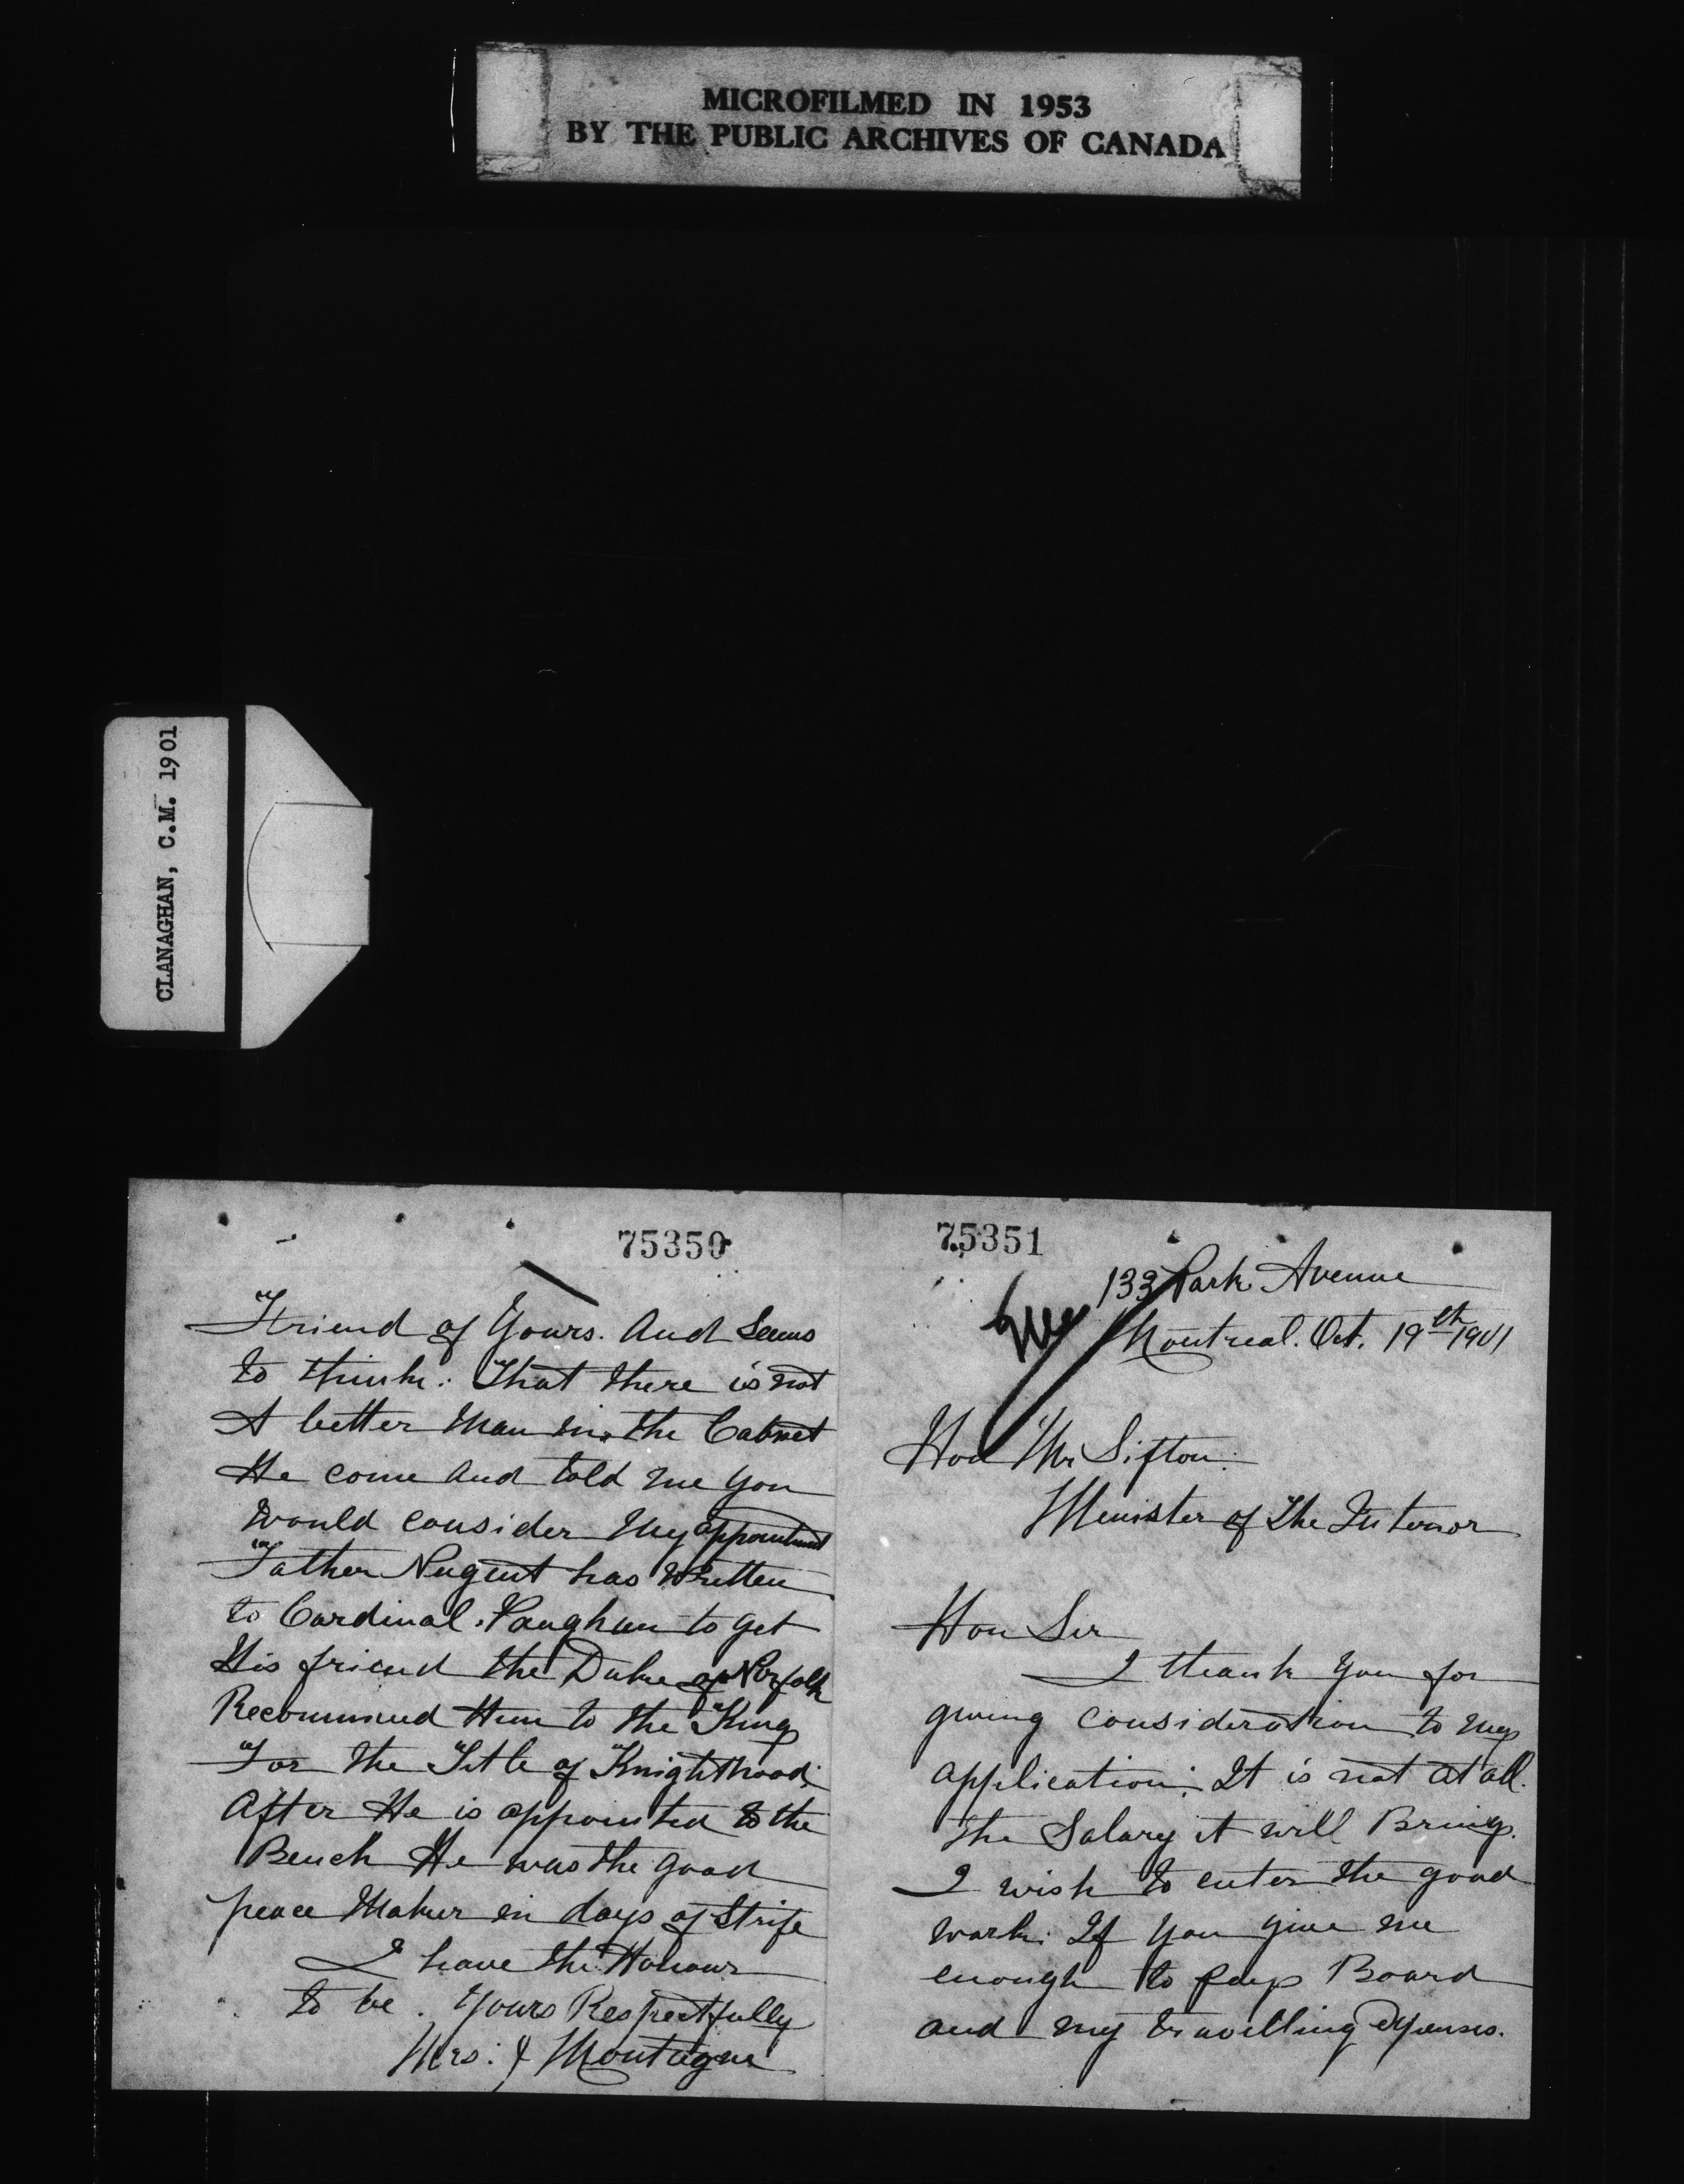 MICROFILMED IN 1953
BY THE PUBLIC ARCHIVES OF CANADA
CLANAGHAN, C.M. 1901
75350
Friend of Yours. And Seems
to think. That there is not
A better Man in the Cabinet
He come And told me you
Would consider My appointment
Father Nugent has Written
to Cardinal Vaughan to get
His friend the Duke of Norfolk
Recommend Him to the King
For the Title of Knighthood
After He is appointed to the
Bench He was the good
peace Maker in days of Strife
I have the Honour
to be. Yours Respectfully
Mrs: J Montague
75351
133 Park Avenue
Montreal. Oct. 19th 1901
Hon Mr Sifton.
Minister of The Interior
Hon Sir
I thank You for
giving consideration to my
application. It is not at all.
the Salary it will Bring.
I wish to enter the good
work. If You give me
enough to pay Board
and my travelling Expenses.